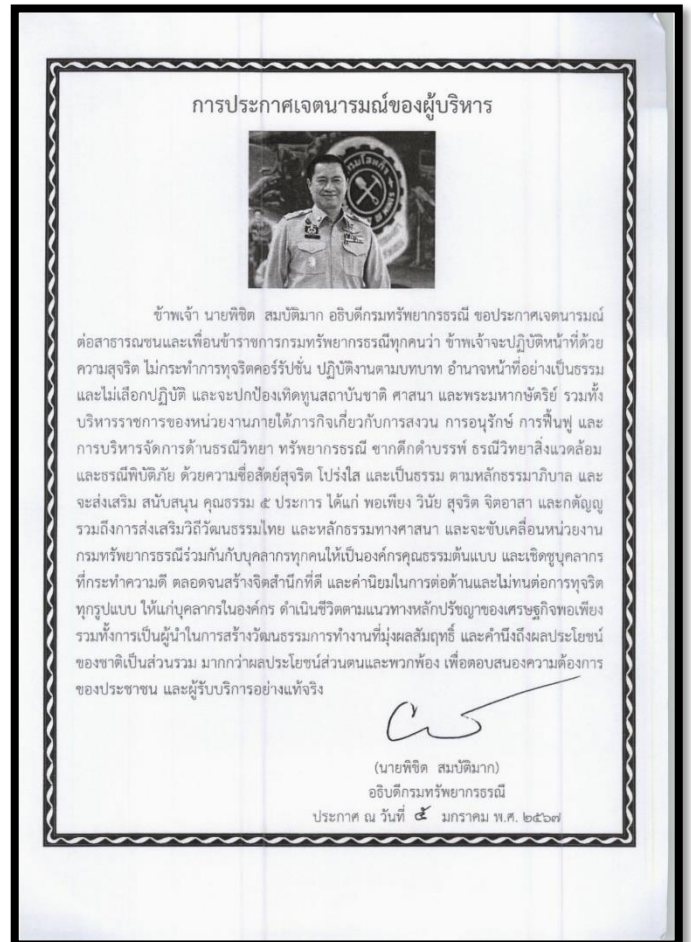 การประกาศเจตนารมณ์ของผู้บริหาร
ข้าพเจ้า นายพิชิต สมบัติมาก อธิบดีกรมทรัพยากรธรณี ขอประกาศเจตนารมณ์
ต่อสาธารณชนและเพื่อนข้าราชการกรมทรัพยากรธรณีทุกคนว่า ข้าพเจ้าจะปฏิบัติหน้าที่ด้วย
ความสุจริต ไม่กระทำการทุจริตคอร์รัปชั่น ปฏิบัติงานตามบทบาท อำนาจหน้าที่อย่างเป็นธรรม
และไม่เลือกปฏิบัติ และจะปกป้องเทิดทูนสถาบันชาติ ศาสนา และพระมหากษัตริย์ รวมทั้ง
บริหารราชการของหน่วยงานภายใต้ภารกิจเกี่ยวกับการสงวน การอนุรักษ์ การฟื้นฟู และ
การบริหารจัดการด้านธรณีวิทยา ทรัพยากรธรณี ซากดึกดำบรรพ์ ธรณีวิทยาสิ่งแวดล้อม
และธรณีพิบัติภัย ด้วยความซื่อสัตย์สุจริต โปร่งใส และเป็นธรรม ตามหลักธรรมาภิบาล และ
จะส่งเสริม สนับสนุน คุณธรรม ๕ ประการ ได้แก่ พอเพียง วินัย สุจริต จิตอาสา และกตัญญู
รวมถึงการส่งเสริมวิถีวัฒนธรรมไทย และหลักธรรมทางศาสนา และจะขับเคลื่อนหน่วยงาน
กรมทรัพยากรธรณีร่วมกันกับบุคลากรทุกคนให้เป็นองค์กรคุณธรรมต้นแบบ และเชิดชูบุคลากร
ที่กระทำความดี ตลอดจนสร้างจิตสำนึกที่ดี และค่านิยมในการต่อต้านและไม่ทนต่อการทุจริต
ทุกรูปแบบ ให้แก่บุคลากรในองค์กร ดำเนินชีวิตตามแนวทางหลักปรัชญาของเศรษฐกิจพอเพียง
รวมทั้งการเป็นผู้นำในการสร้างวัฒนธรรมการทำงานที่มุ่งผลสัมฤทธิ์ และคำนึงถึงผลประโยชน์
ของชาติเป็นส่วนรวม มากกว่าผลประโยชน์ส่วนตนและพวกพ้อง เพื่อตอบสนองความต้องการ
ของประชาชน และผู้รับบริการอย่างแท้จริง
(นายพิชิต สมบัติมาก)
อธิบดีกรมทรัพยากรธรณี
ประกาศ ณ วันที่ ๕ มกราคม พ.ศ. ๒๕๖๗